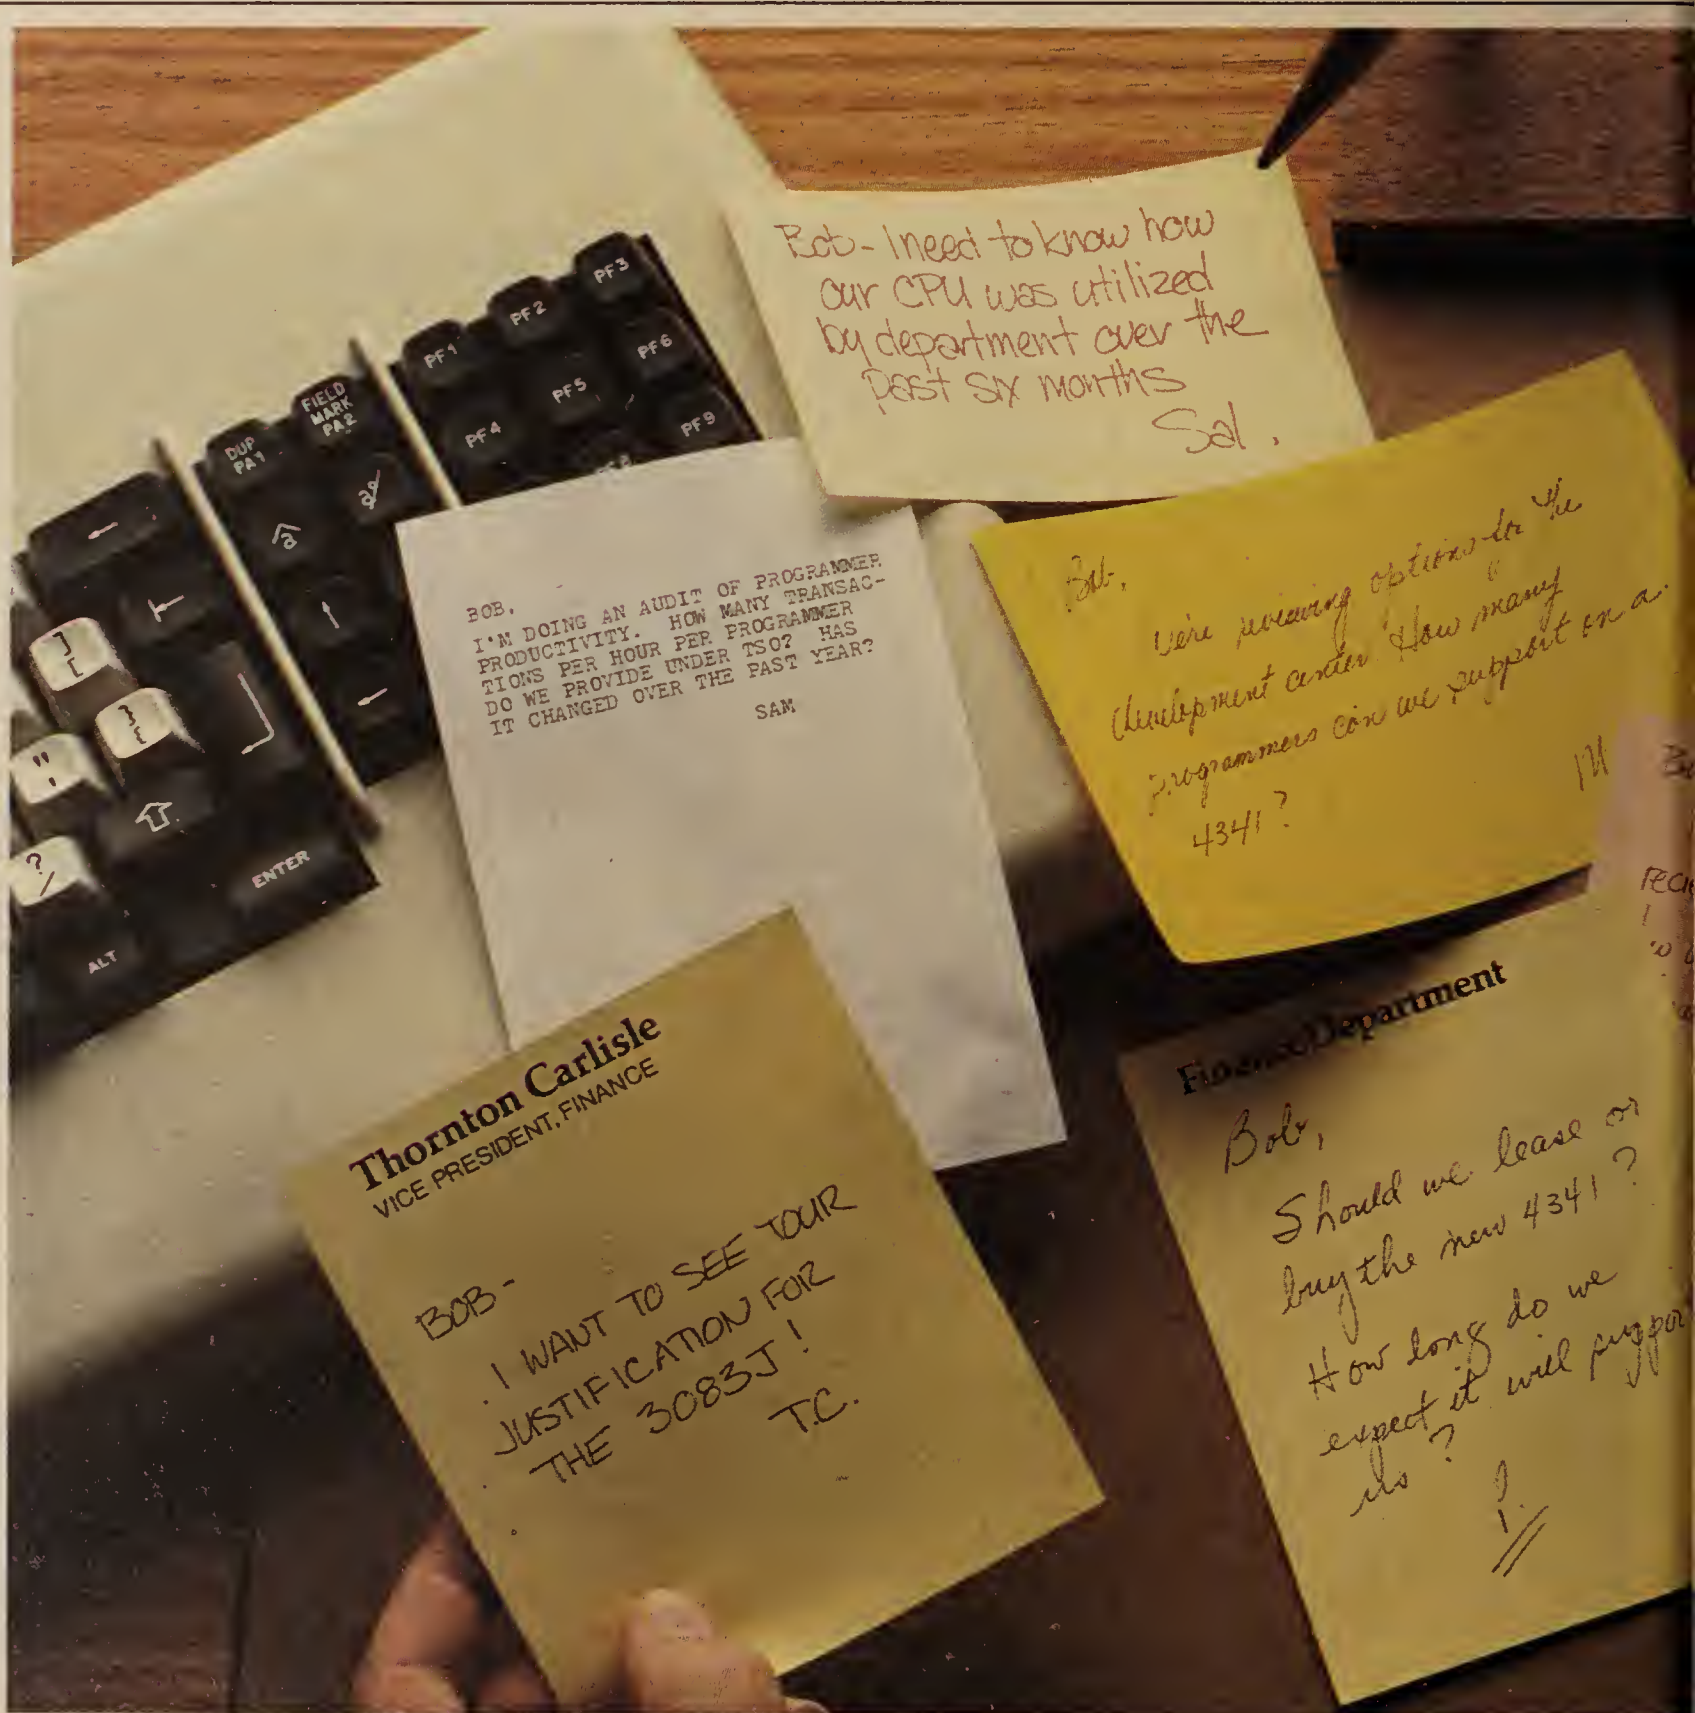 Bob- I need to know how
our CPU was utilized
by department over the
past six months
Sal.
PF3
PF2
PF1
PF6
PF5
PF4
PF9
FIELD
MARK
PA2
DUP
PA1
a
←
↑
←
]
[
}
{
"
'
?
/
ENTER
ALT
BOB,
I'M DOING AN AUDIT OF PROGRAMMER
PRODUCTIVITY. HOW MANY TRANSAC-
TIONS PER HOUR PER PROGRAMMER
DO WE PROVIDE UNDER TSO? HAS
IT CHANGED OVER THE PAST YEAR?
SAM
Bob,
We're reviewing options for the
development center. How many
programmers can we support on a
4341?
M
Thornton Carlisle
VICE PRESIDENT, FINANCE
BOB-
I WANT TO SEE YOUR
JUSTIFICATION FOR
THE 3083J!
T.C.
Finance Department
Bob,
Should we lease or
buy the new 4341?
How long do we
expect it will suppor
us?